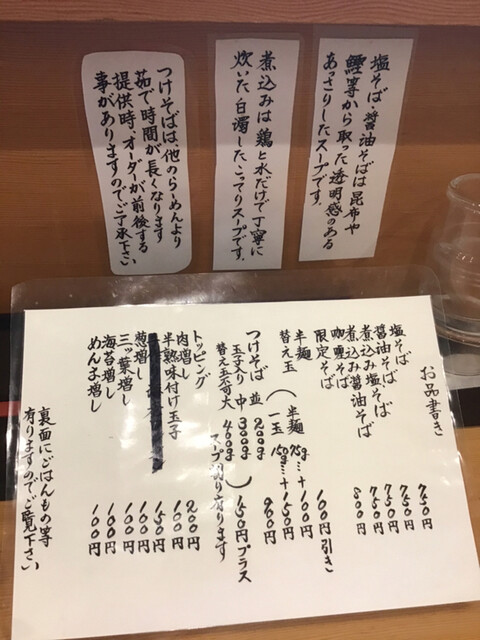 塩そば・醤油そばは昆布や
鰹等から取った透明感のある
あっさりしたスープです。
煮込みは鶏と水だけで丁寧に
炊いた白濁したこってりスープです。
つけそばは、他のらーめんより
茹で時間が長くなります
提供時、オーダーが前後する
事がありますのでご了承下さい
お品書き
塩そば 750円
醤油そば 750円
煮込み塩そば 750円
煮込み醤油そば 750円
咖喱そば 800円
限定そば
半麺 100円引き
替え玉 ( 半麺 75g…+100円
一玉 150g…+150円
つけそば 並 200g 900円
玉子入り 中 300g
替え玉不可 大 400g ) 150円プラス
スープ割り有ります
トッピング
肉増し 200円
半熟味付け玉子 100円
150円
葱増し 100円
三ッ葉増し 100円
海苔増し 100円
めんま増し 100円
裏面にごはんもの等
有りますのでご覧下さい